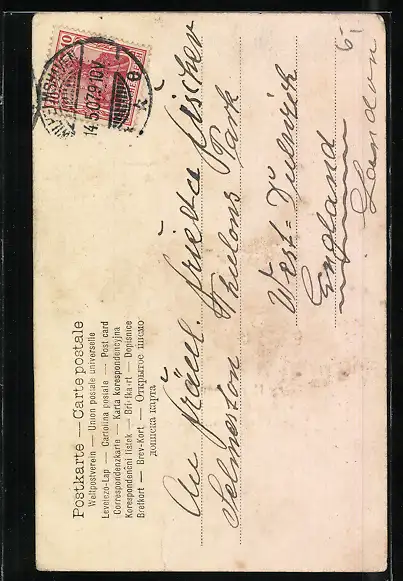 Postkarte — Carte postale
Weltpostverein — Union postale universelle
Levelezo-Lap — Cartolina postale — Post card
Correspondenzkarte — Karta korespondencyjna
Korespondenční lístek — Briefkaart — Dopisnice
Brefkort — Brev-Kort — Открытое письмо
дописна карта
10
WILHELMSHAVEN
14.5.07.9-10V
An Fräul. Frieda Fischer
Selmeston Thulons Park
West-Dulwich
England
London